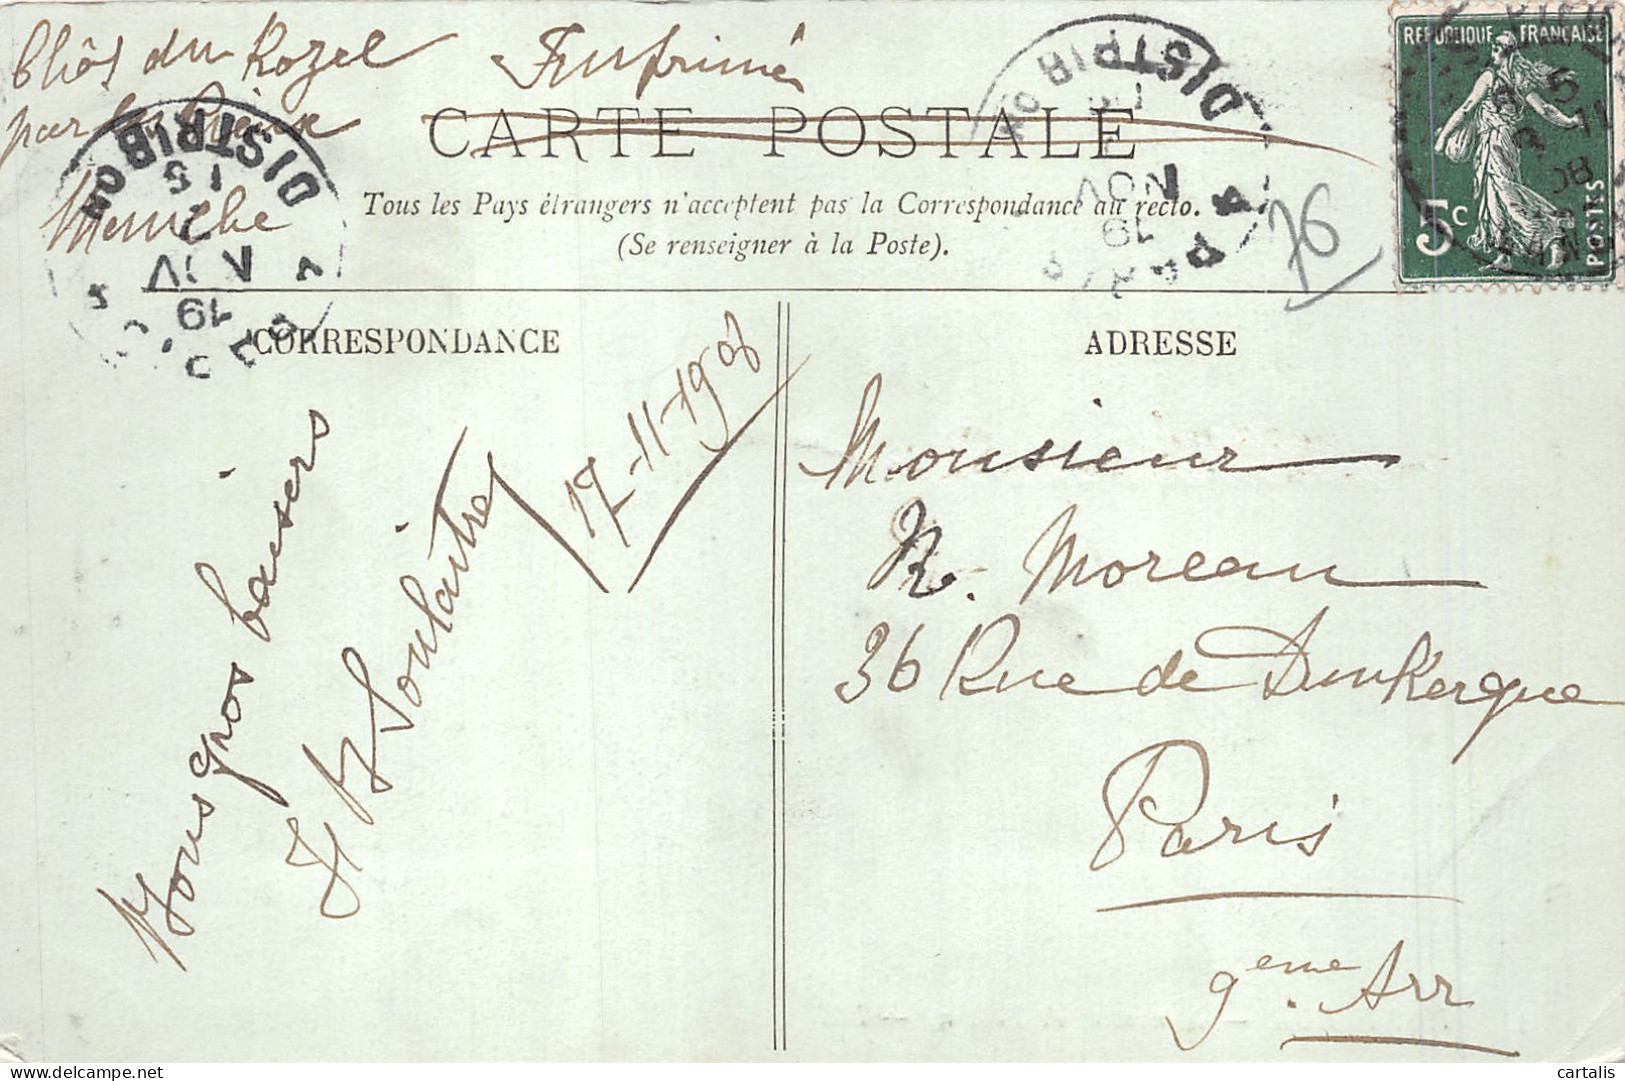 du Rozel
Imprimé
par
Manche
CARTE POSTALE
Tous les Pays étrangers n'acceptent pas la Correspondance au recto.
(Se renseigner à la Poste).
RÉPUBLIQUE FRANÇAISE
5c
POSTES
DISTRIBON
15
NOV
19
DISTRIBON
NOV
19
PARIS
76
CORRESPONDANCE
ADRESSE
17-11-1908
gros baisers
Monsieur
R. Moreau
36 Rue de Dunkerque
Paris
9eme Arr
cartalis.delcampe.net